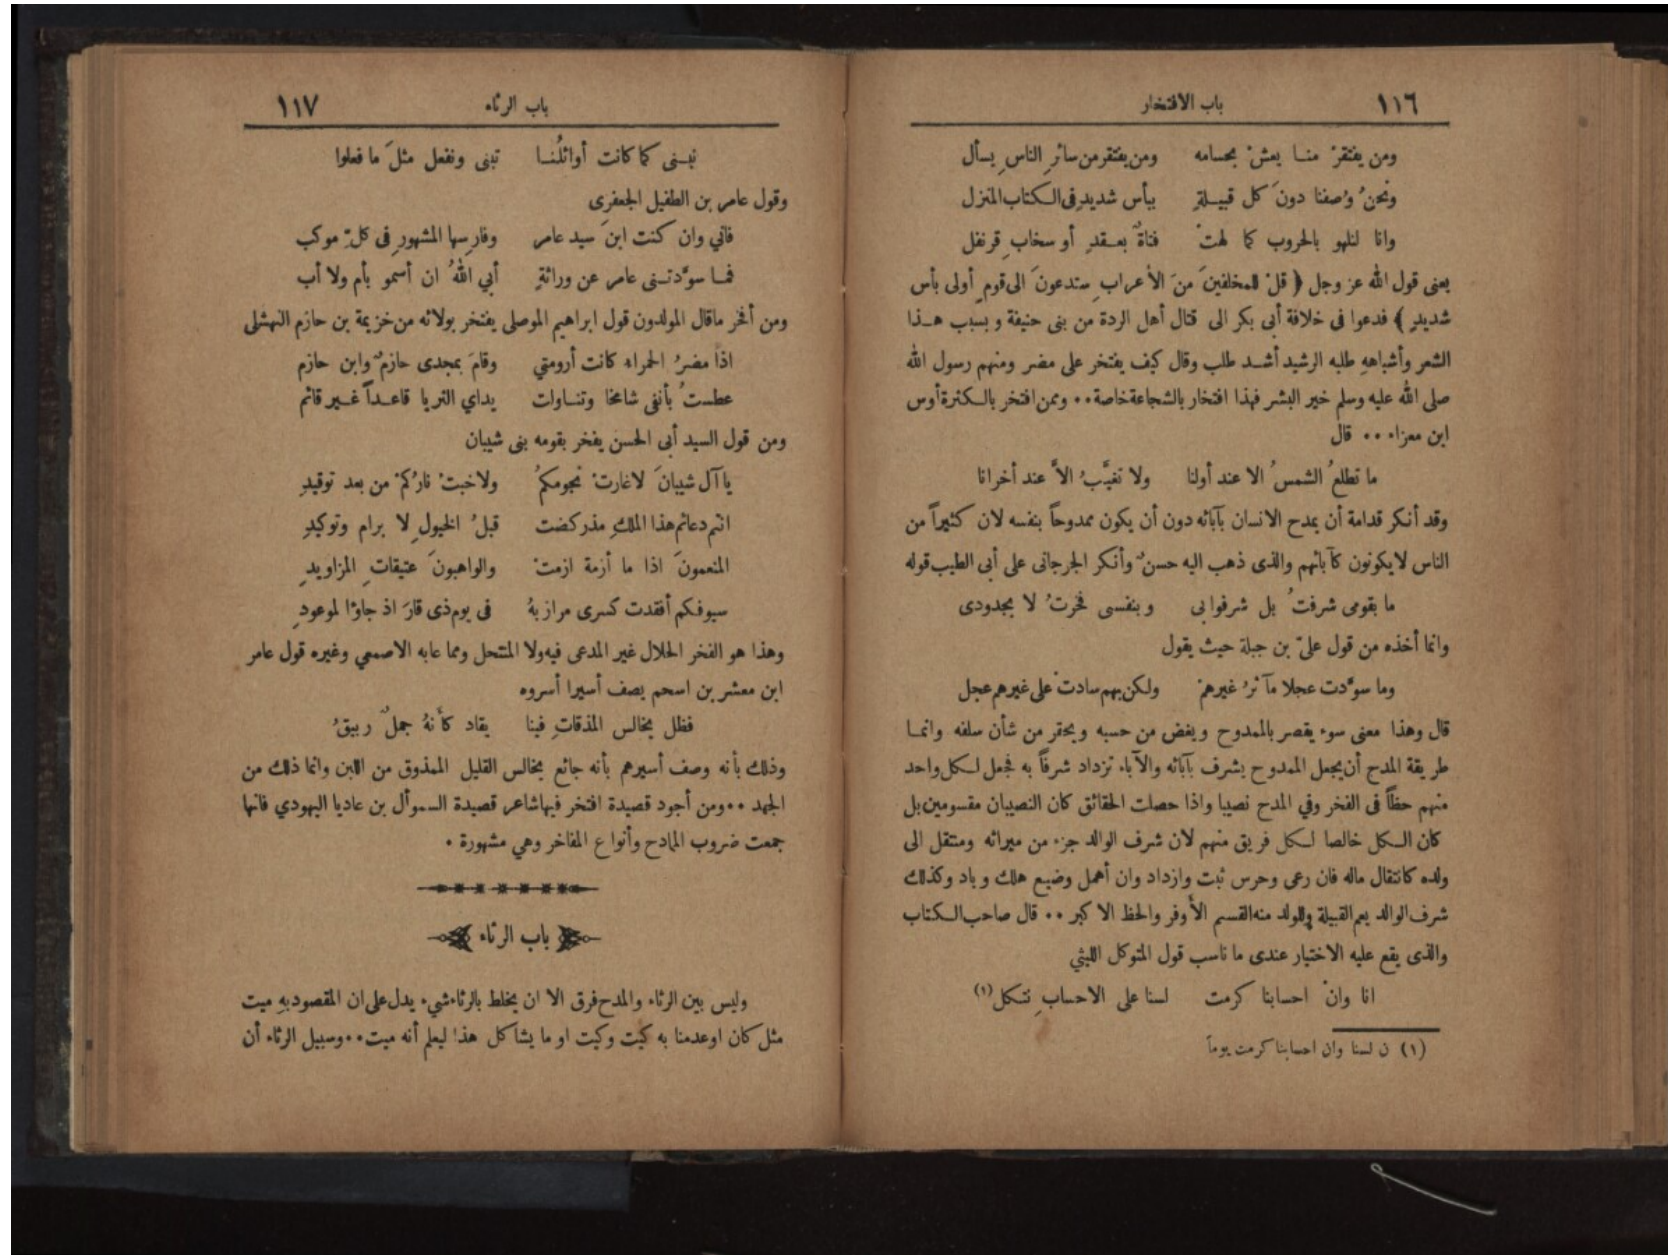 ١١٦ باب الافتخار
ومن يفتقرْ منا يعشْ بحسامه ومن يفتقر من سائرِ الناسِ يسأل
ونحنُ وُصفنا دونَ كل قبيلةٍ ببأس شديدٍ فى الكتاب المنزل
وانا لنلهو بالحروب كما لهتْ فتاةٌ بعقدٍ أو سخابِ قرنفل
يعنى قول الله عز وجل ﴿ قلْ للمخلفينَ منَ الأعرابِ ستدعونَ الى قومٍ أولى بأس
شديدٍ ﴾ فدعوا فى خلافة أبى بكر الى قتال أهل الردة من بنى حنيفة و بسبب هذا
الشعر وأشباههِ طلبه الرشيد أشد طلب وقال كيف يفتخر على مضر ومنهم رسول الله
صلى الله عليه وسلم خير البشر فهذا افتخار بالشجاعة خاصة ٠٠ وممن افتخر بالكثرة أوس
ابن معزاء ٠٠٠ قال
ما تطلعُ الشمسُ الا عند أولنا ولا تغيَّبُ الاَّ عند أخرانا
وقد أنكر قدامة أن يمدح الانسان بآبائه دون أن يكون ممدوحاً بنفسه لان كثيراً من
الناس لا يكونون كآبائهم والذى ذهب اليه حسنٌ وأنكر الجرجانى على أبى الطيب قوله
ما بقومى شرفتُ بل شرفوا بى و بنفسى فخرتُ لا بجدودى
وانما أخذه من قول علىّ بن جبلة حيث يقول
وما سوَّدت عجلا مآثرُ غيرهمْ ولكن بهم سادتْ على غيرهم عجل
قال وهذا معنى سوء يقصر بالممدوح و يغض من حسبه و يحقر من شأن سلفه وانما
طريقة المدح أن يجعل الممدوح يشرف بآبائه والآباء تزداد شرفاً به فجعل لكل واحد
منهم حظاً فى الفخر وفي المدح نصيبا واذا حصلت الحقائق كان النصيبان مقسومين بل
كان الكل خالصا لكل فريق منهم لان شرف الوالد جزء من ميراثه ومنتقل الى
ولده كانتقال ماله فان رعى وحرس ثبت وازداد وان أهمل وضيع هلك و باد وكذلك
شرف الوالد يعم القبيلة وللولد منه القسم الأوفر والحظ الاكبر ٠٠ قال صاحب الكتاب
والذى يقع عليه الاختيار عندى ما ناسب قول المتوكل الليثي
انا وانْ احسابنا كرمت لسنا على الاحسابِ نتكل (١)
(١) ن لسنا وان احسابنا كرمت يوماً
باب الرثاء ١١٧
نبنى كما كانت أوائلُنا تبنى ونفعل مثلَ ما فعلوا
وقول عامر بن الطفيل الجعفرى
فاني وان كنت ابنَ سيد عامر وفارسها المشهور فى كلّ موكب
فما سوَّدتنى عامر عن وراثةٍ أبي اللهُ ان أسمو بأم ولا أب
ومن أفخر ماقال المولدون قول ابراهيم الموصلى يفتخر بولائه من خزيمة بن حازم النهشلى
اذا مضرُ الحمراء كانت أرومتي وقامَ بمجدى حازمٌ وابن حازم
عطستُ بأنفى شامخا وتناولت يداي الثريا قاعداً غير قائم
ومن قول السيد أبى الحسن يفخر بقومه بنى شيبان
يا آل شيبانَ لاغارتْ نجومكمُ ولاخبتْ ناركمْ من بعد توقيدِ
انتم دعائم هذا الملكِ مذركضت قبلُ الخيولِ لا برام وتوكيدِ
المنعمونَ اذا ما أزمة ازمتْ والواهبونَ عتيقاتِ المزاويدِ
سيوفكم أفقدت كسرى مرازبهُ فى يوم ذى قارَ اذ جاؤا لموعودِ
وهذا هو الفخر الحلال غير المدعى فيه ولا المنتحل ومما عابه الاصمعي وغيره قول عامر
ابن معشر بن اسحم يصف أسيرا أسروه
فظل يخالس المذقاتِ فينا يقاد كأنهُ جملٌ ربيقُ
وذلك بأنه وصف أسيرهم بأنه جائع يخالس القليل الممذوق من اللبن وانما ذلك من
الجهد ٠٠ ومن أجود قصيدة افتخر فيها شاعر قصيدة السموأل بن عاديا اليهودي فانها
جمعت ضروب المادح وأنواع المفاخر وهي مشهورة ٠
باب الرثاء
وليس بين الرثاء والمدح فرق الا ان يخلط بالرثاء شيء يدل على ان المقصود بهِ ميت
مثل كان اوعدمنا به كيت وكيت او ما يشاكل هذا ليعلم أنه ميت ٠٠ وسبيل الرثاء أن